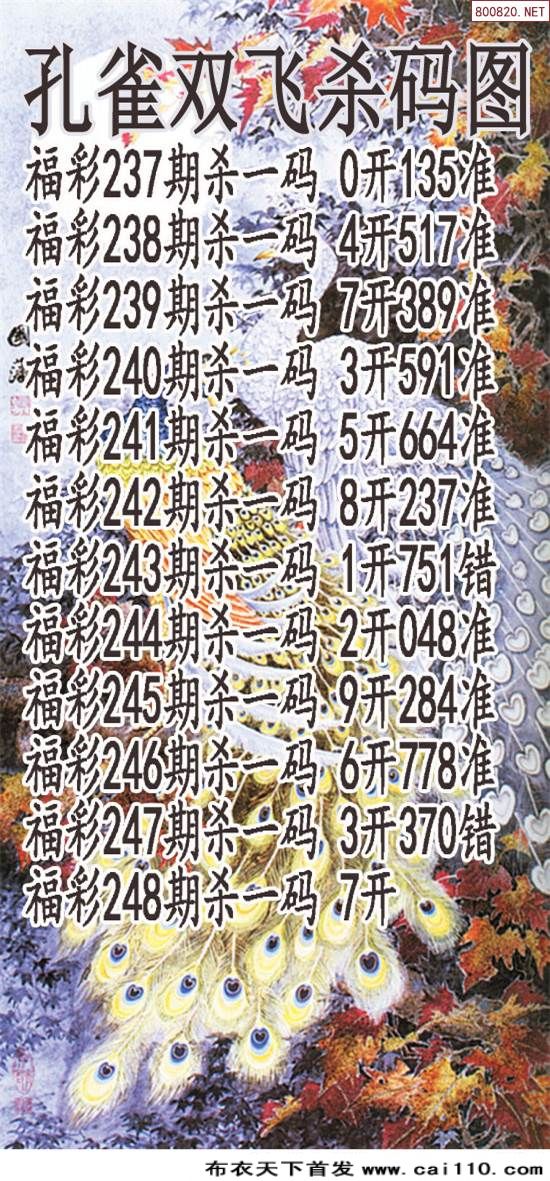 800820.NET
孔雀双飞杀码图
福彩237期杀一码 0开135准
福彩238期杀一码 4开517准
福彩239期杀一码 7开389准
福彩240期杀一码 3开591准
福彩241期杀一码 5开664准
福彩242期杀一码 8开237准
福彩243期杀一码 1开751错
福彩244期杀一码 2开048准
福彩245期杀一码 9开284准
福彩246期杀一码 6开778准
福彩247期杀一码 3开370错
福彩248期杀一码 7开
布衣天下首发 www.cai110.com